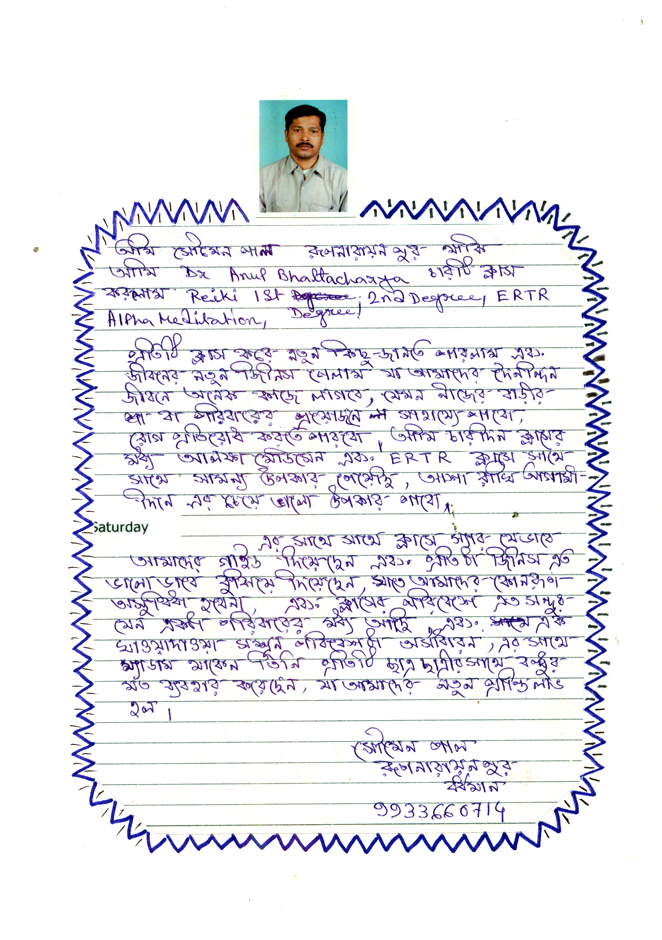 আমি সৌমেন পাল রূপনারায়নপুর থাকি
আমি Dr Anup Bhattacharya চারটি ক্লাস
করলাম Reiki 1st Degree, 2nd Degree, ERTR
Alpha Meditation,
প্রতিটি ক্লাস করে নতুন কিছু জানতে পারলাম এবং
জীবনের নতুন জিনিস পেলাম যা আমাদের দৈনন্দিন
জীবনে অনেক কাজে লাগবে, যেমন নীজের বাড়ীর
বা পরিবারের প্রয়োজনে সাহায্যে পাবো,
রোগ প্রতিরোধ করতে পারবো, আমি চারদিন ক্লাসের
মধ্য আলফা মেডিসেন এবং ERTR ক্লাসে সাথে
সাথে সামন্য উপকার পেয়েছি, আশা রাখি আগামী
দিনে এর চেয়ে ভালো উপকার পাবো।
Saturday
এর সাথে সাথে ক্লাসে স্যার যেভাবে
আমাদের গাইড দিয়েছেন এবং প্রতিটা জিনিস এত
ভালো ভাবে বুঝিয়ে দিয়েছেন, যাতে আমাদের কোনরূপ
অসুবিধা হবেনা, এবং ক্লাসের পরিবেশ এত সন্দুর
যেন একটা পরিবারের মধ্য আছি এবং এক
খাওয়াদাওয়া সম্পূন পরিবেশটা অসাধারন, এর সাথে
ম্যাডাম যাকেন তিনি প্রতিটি ছাত্র ছাত্রীর সাথে বন্ধুর
মত ব্যবহার করেছেন, যা আমাদের নতুন প্রাপ্তি লাভ
হল।
সৌমেন পাল
রূপনারায়নপুর
বর্ধমান
9933660714